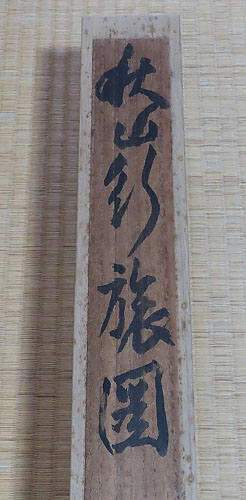 秋山行旅圖